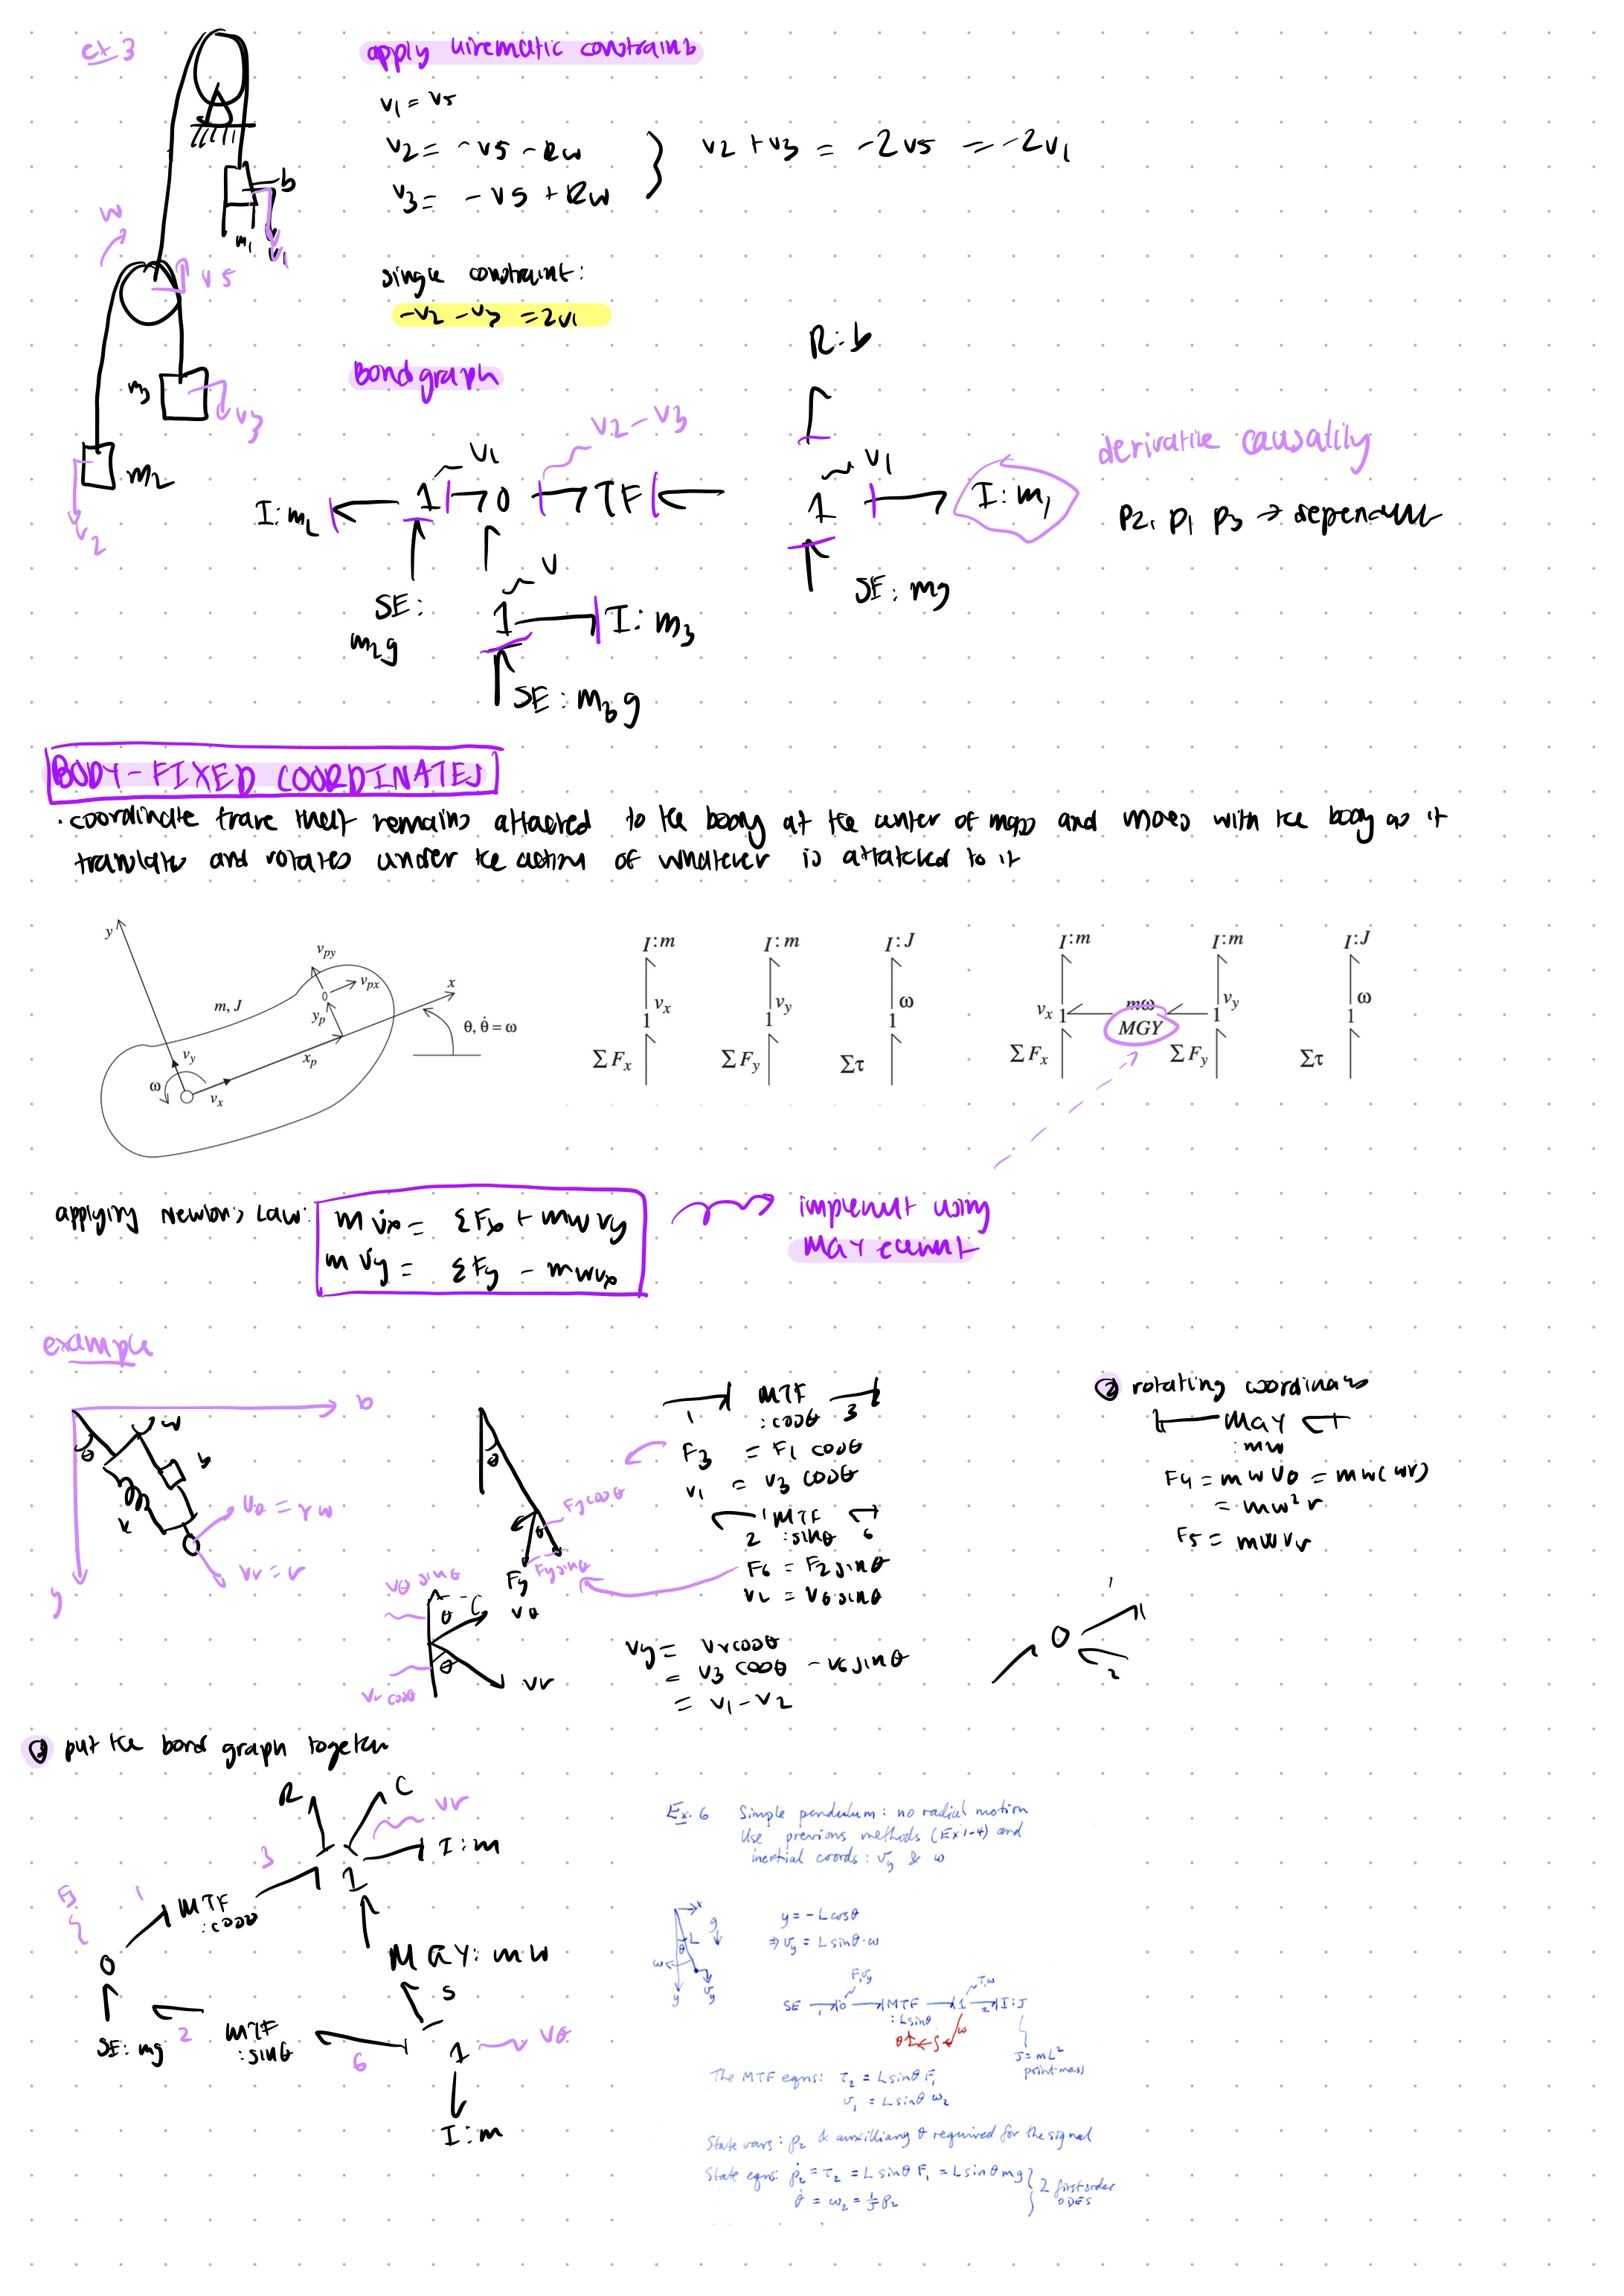 ex 3
apply kinematic constrains
v1 = v5
v2 = -v5 - Rw
v3 = -v5 + Rw
v2 + v3 = -2v5 = -2v1
single constraint:
-v2 - v3 = 2v1
b
m1
v1
w
v5
m3
v3
m2
v2
Bond graph
v2 - v3
R: b
derivative causality
I: m2
1
v1
0
TF
1
v1
I: m1
p2, p1 p3 → dependent
SE:
m2g
v
1
I: m3
SE: mg
SE: m3g
BODY-FIXED COORDINATES
· coordinate frame that remains attached to the body at the center of mass and moves with the body as it
translates and rotates under the action of whatever is attatched to it
y
m, J
vpy
vpx
0
yp
x
θ, θ̇ = ω
xp
vy
ω
vx
I:m
vx
1
ΣFx
I:m
vy
1
ΣFy
I:J
ω
1
Στ
I:m
vx 1
ΣFx
mω
MGY
I:m
vy
1
ΣFy
I:J
ω
1
Στ
applying Newton's Law:
m v̇x = ΣFx + mwvy
m v̇y = ΣFy - mwvx
implement using
MGY
example
b
w
θ
b
k
vθ = rw
vr = r
y
θ
Fy cosθ
Fy sinθ
Fy
vθ
vθ sinθ
θ
vr cosθ
vr
1 MTF 3
: cosθ
F3 = F1 cosθ
v1 = v3 cosθ
MTF
2 : sinθ 6
F6 = F2 sinθ
v2 = v6 sinθ
vy = vr cosθ
= v3 cosθ - v6 sinθ
= v1 - v2
② rotating coordinates
MGY
: mw
F4 = mwvθ = mw(wr)
= mw²r
F5 = mwvr
1
0
2
put the bond graph together
R
C
vr
I: m
3
1
1
MTF
: cosθ
0
MGY: mw
5
SE: mg
2
MTF
: sinθ
6
1
vθ
I: m
Ex. 6 Simple pendulum: no radial motion
Use previous methods (Ex 1-4) and
inertial coords: vy & ω
x
g
L
θ
ω
y
vy
y = -L cosθ
⇒ vy = L sinθ · ω
F, vy
τ, ω
SE 1 0 MTF 1 2 I: J
: L sinθ
θ
ω
J = mL²
point mass
The MTF eqns: τ2 = L sinθ F1
v1 = L sinθ ω2
State vars: p2 & auxilliary θ required for the signal
State eqns: ṗ2 = τ2 = L sinθ F1 = L sinθ mg
θ̇ = ω2 = 1/J p2
2 first order
ODES